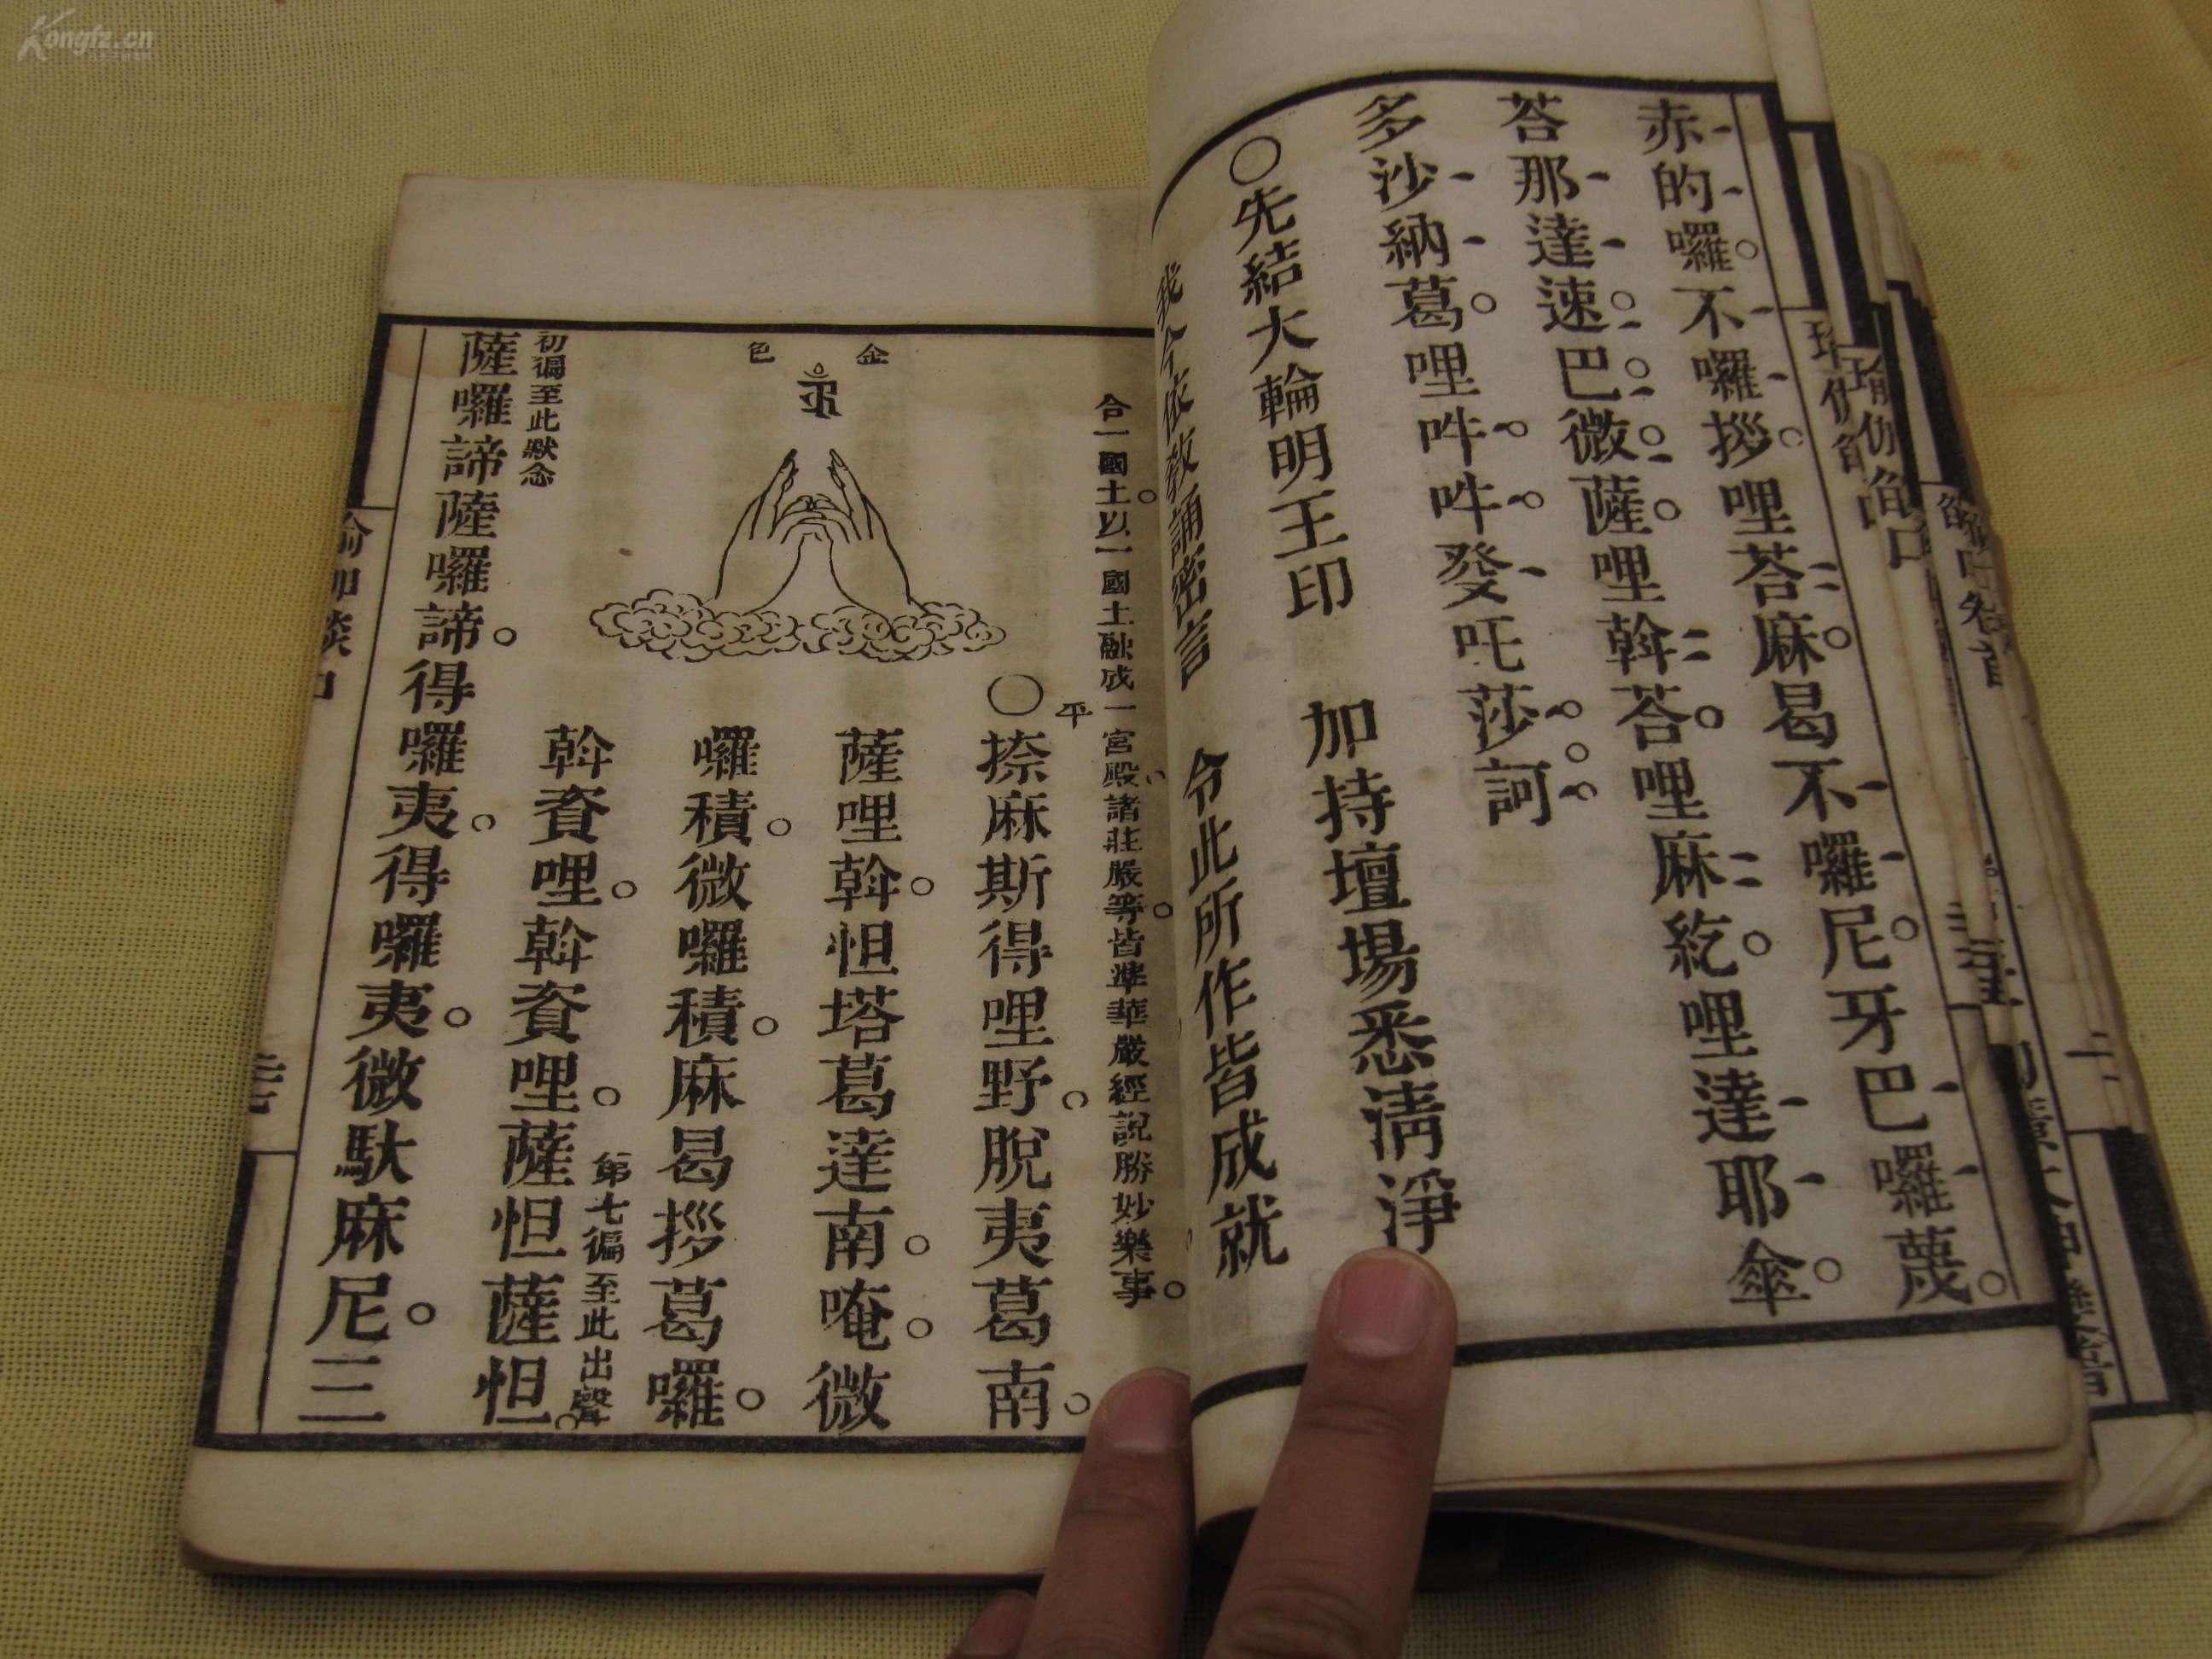 赤的囉。不囉拶。哩荅麻。曷不囉尼。牙巴囉蔑。
荅那達速巴微薩。哩斡荅。哩麻紇。哩達耶傘。
多沙納葛。哩吽吽發吒莎訶
○先結大輪明王印 加持壇場悉清淨
我今依教誦密言 令此所作皆成就
合一國土。以一國土融成一宮殿。諸莊嚴等。皆準華嚴經說勝妙樂事。
平
○捺麻斯得哩野。脫夷葛南。
薩哩斡。怛塔葛達南。唵。微
囉積。微囉積。麻曷拶葛囉。
斡資哩。斡資哩。薩怛薩怛。
第七徧至此出聲
金色
初徧至此默念
薩囉諦薩囉諦。得囉夷。得囉夷。微馱麻尼。三
瑜伽燄口
Kongfz.cn